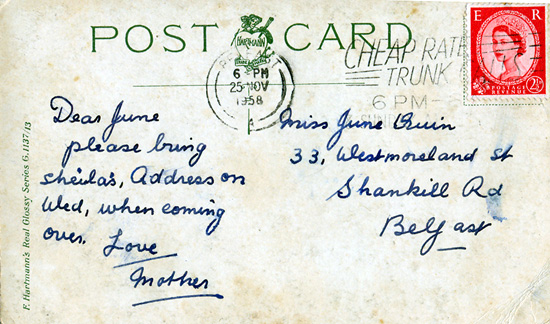 POST CARD
HARTMANN
6 PM
25 NOV
1958
A
CHEAP RATE
TRUNK
6 PM-
E R
POSTAGE
REVENUE
2½D
Dear June
please bring
sheila's, Address on
Wed, when coming
over. Love
Mother
Miss June Quin
33, Westmoreland st
Shankill Rd
Belfast
F. Hartmann's Real Glossy Series 6.1137/13